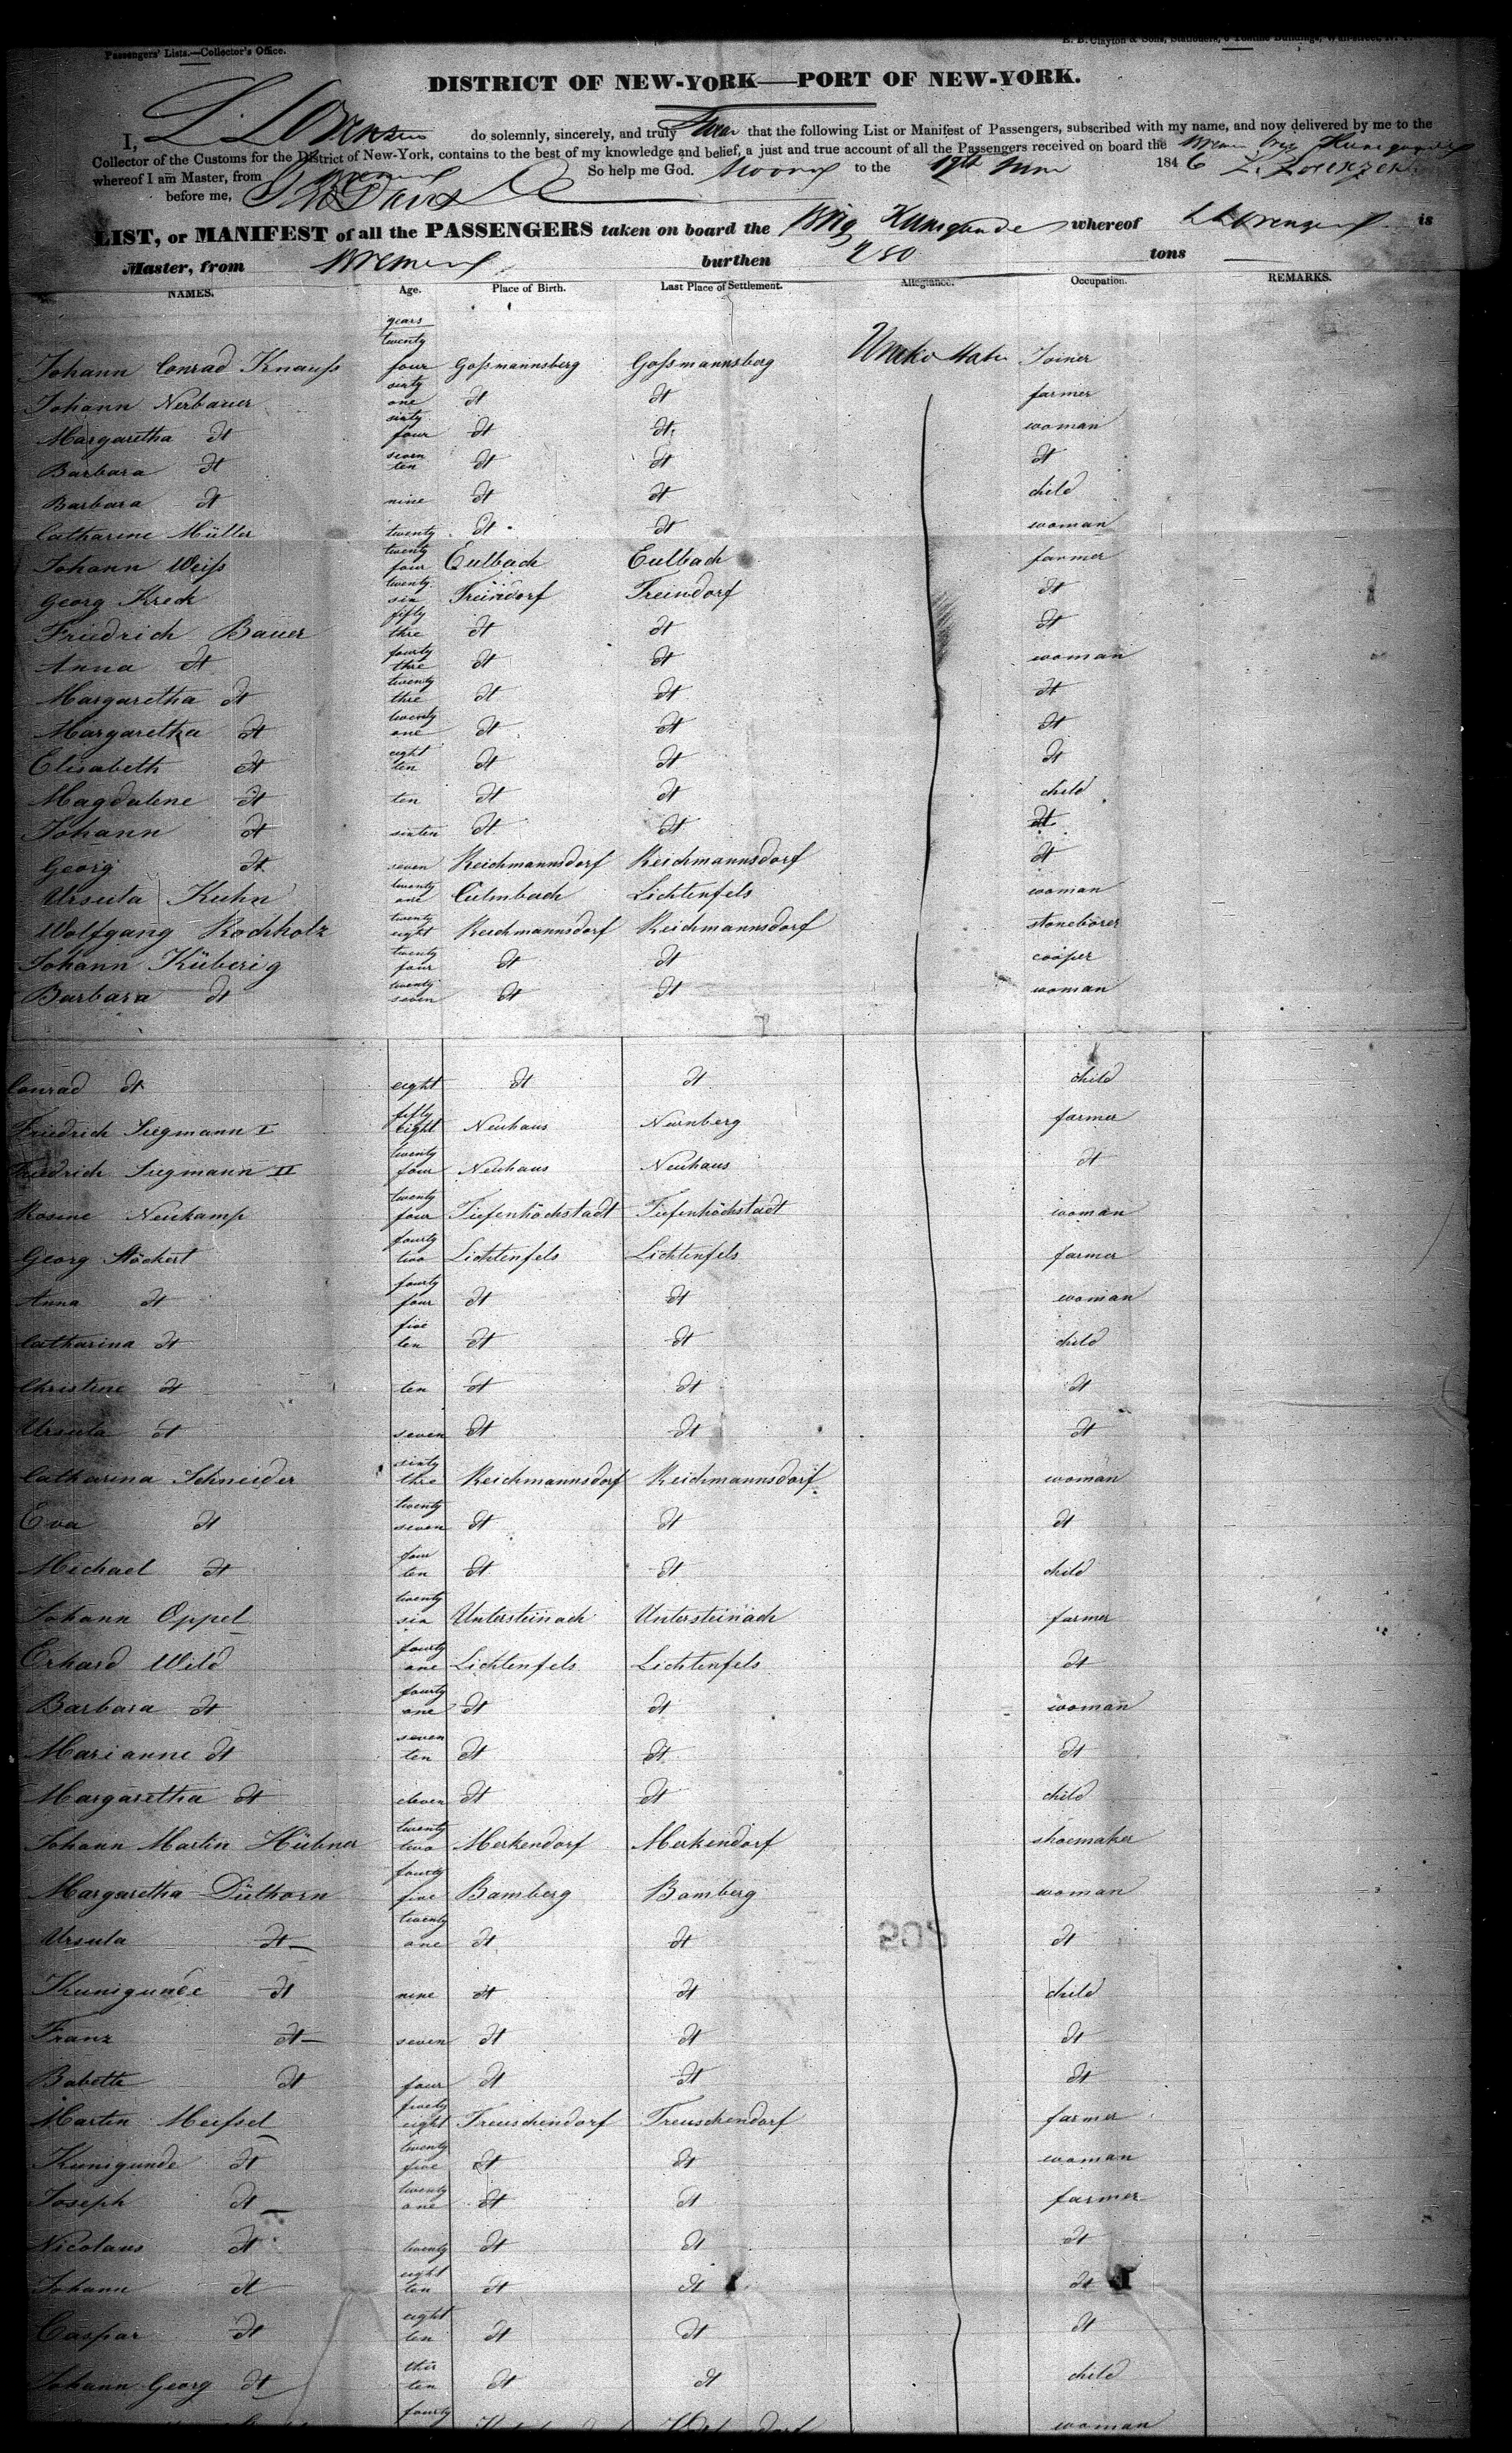 Passengers' Lists.—Collector's Office.
E. B. Clayton & Sons, Stationers,
DISTRICT OF NEW-YORK—PORT OF NEW-YORK.
I, L. Lorenzen do solemnly, sincerely, and truly swear that the following List or Manifest of Passengers, subscribed with my name, and now delivered by me to the
Collector of the Customs for the District of New-York, contains to the best of my knowledge and belief, a just and true account of all the Passengers received on board the Brem Brig Kunigunde
whereof I am Master, from Bremen So help me God. to the 1846 L. Lorenzen
before me,
LIST, or MANIFEST of all the PASSENGERS taken on board the Brig Kunigunde whereof L Lorenzen is
Master, from Bremen burthen tons
NAMES. Age. Place of Birth. Last Place of Settlement. Allegiance. Occupation. REMARKS.
years
Johann Conrad Knauſs twenty four Goſsmannsberg Goſsmannsberg United States Joiner
Johann Nerbauer sixty one dt dt farmer
Margaretha dt sixty four dt dt woman
Barbara dt seven ten dt dt dt
Barbara dt nine dt dt child
Catharine Müller twenty dt dt woman
Johann Weiſs twenty four Eulbach Eulbach farmer
Georg Kreck twenty six Treündorf Treindorf dt
Friedrich Bauer fifty thre dt dt dt
Anna dt fourty thre dt dt woman
Margaretha dt twenty thre dt dt dt
Margaretha dt twenty one dt dt dt
Elisabeth dt eight ten dt dt dt
Magdalene dt ten dt dt child
Johann dt sixten dt dt dt
Georg dt seven Reichmannsdorf Reichmannsdorf dt
Ursula Kuhn twenty one Culmbach Lichtenfels woman
Wolfgang Rochholz twenty eight Reichmannsdorf Reichmannsdorf stoneborer
Johann Küberig twenty four dt dt cooper
Barbara dt twenty seven dt dt woman
Conrad dt eight dt dt child
Friedrich Siegmann I fifty eight Neuhaus Nurnberg farmer
Friedrich Siegmann II twenty four Neuhaus Neuhaus dt
Rosine Neukamp twenty four Tiefenhöchstadt Tiefenhöchstadt woman
Georg Stöckert fourty two Lichtenfels Lichtenfels farmer
Anna dt fourty four dt dt woman
Catharina dt five ten dt dt child
Christine dt ten dt dt dt
Ursula dt seven dt dt dt
Catharina Schneider sixty thre Reichmannsdorf Reichmannsdorf woman
Eva dt twenty seven dt dt dt
Michael dt four ten dt dt child
Johann Oppel twenty six Untersteinach Untersteinach farmer
Erhard Wild fourty one Lichtenfels Lichtenfels dt
Barbara dt fourty one dt dt woman
Marianne dt seven ten dt dt dt
Margaretha dt eleven dt dt child
Johann Martin Hübner twenty two Merkendorf Merkendorf shoemaker
Margaretha Dülhorn fourty five Bamberg Bamberg woman
Ursula dt twenty one dt dt dt
Kunigunde dt nine dt dt child
Franz dt seven dt dt dt
Babette dt four dt dt dt
Martin Meiſsel eight Treuschendorf Treuschendorf farmer
Kunigunde dt twenty five dt dt woman
Joseph dt twenty one dt dt farmer
Nicolaus dt twenty dt dt dt
Johann dt eight ten dt dt dt
Caspar dt eight ten dt dt dt
Johann Georg dt thir ten dt dt child
fourty woman